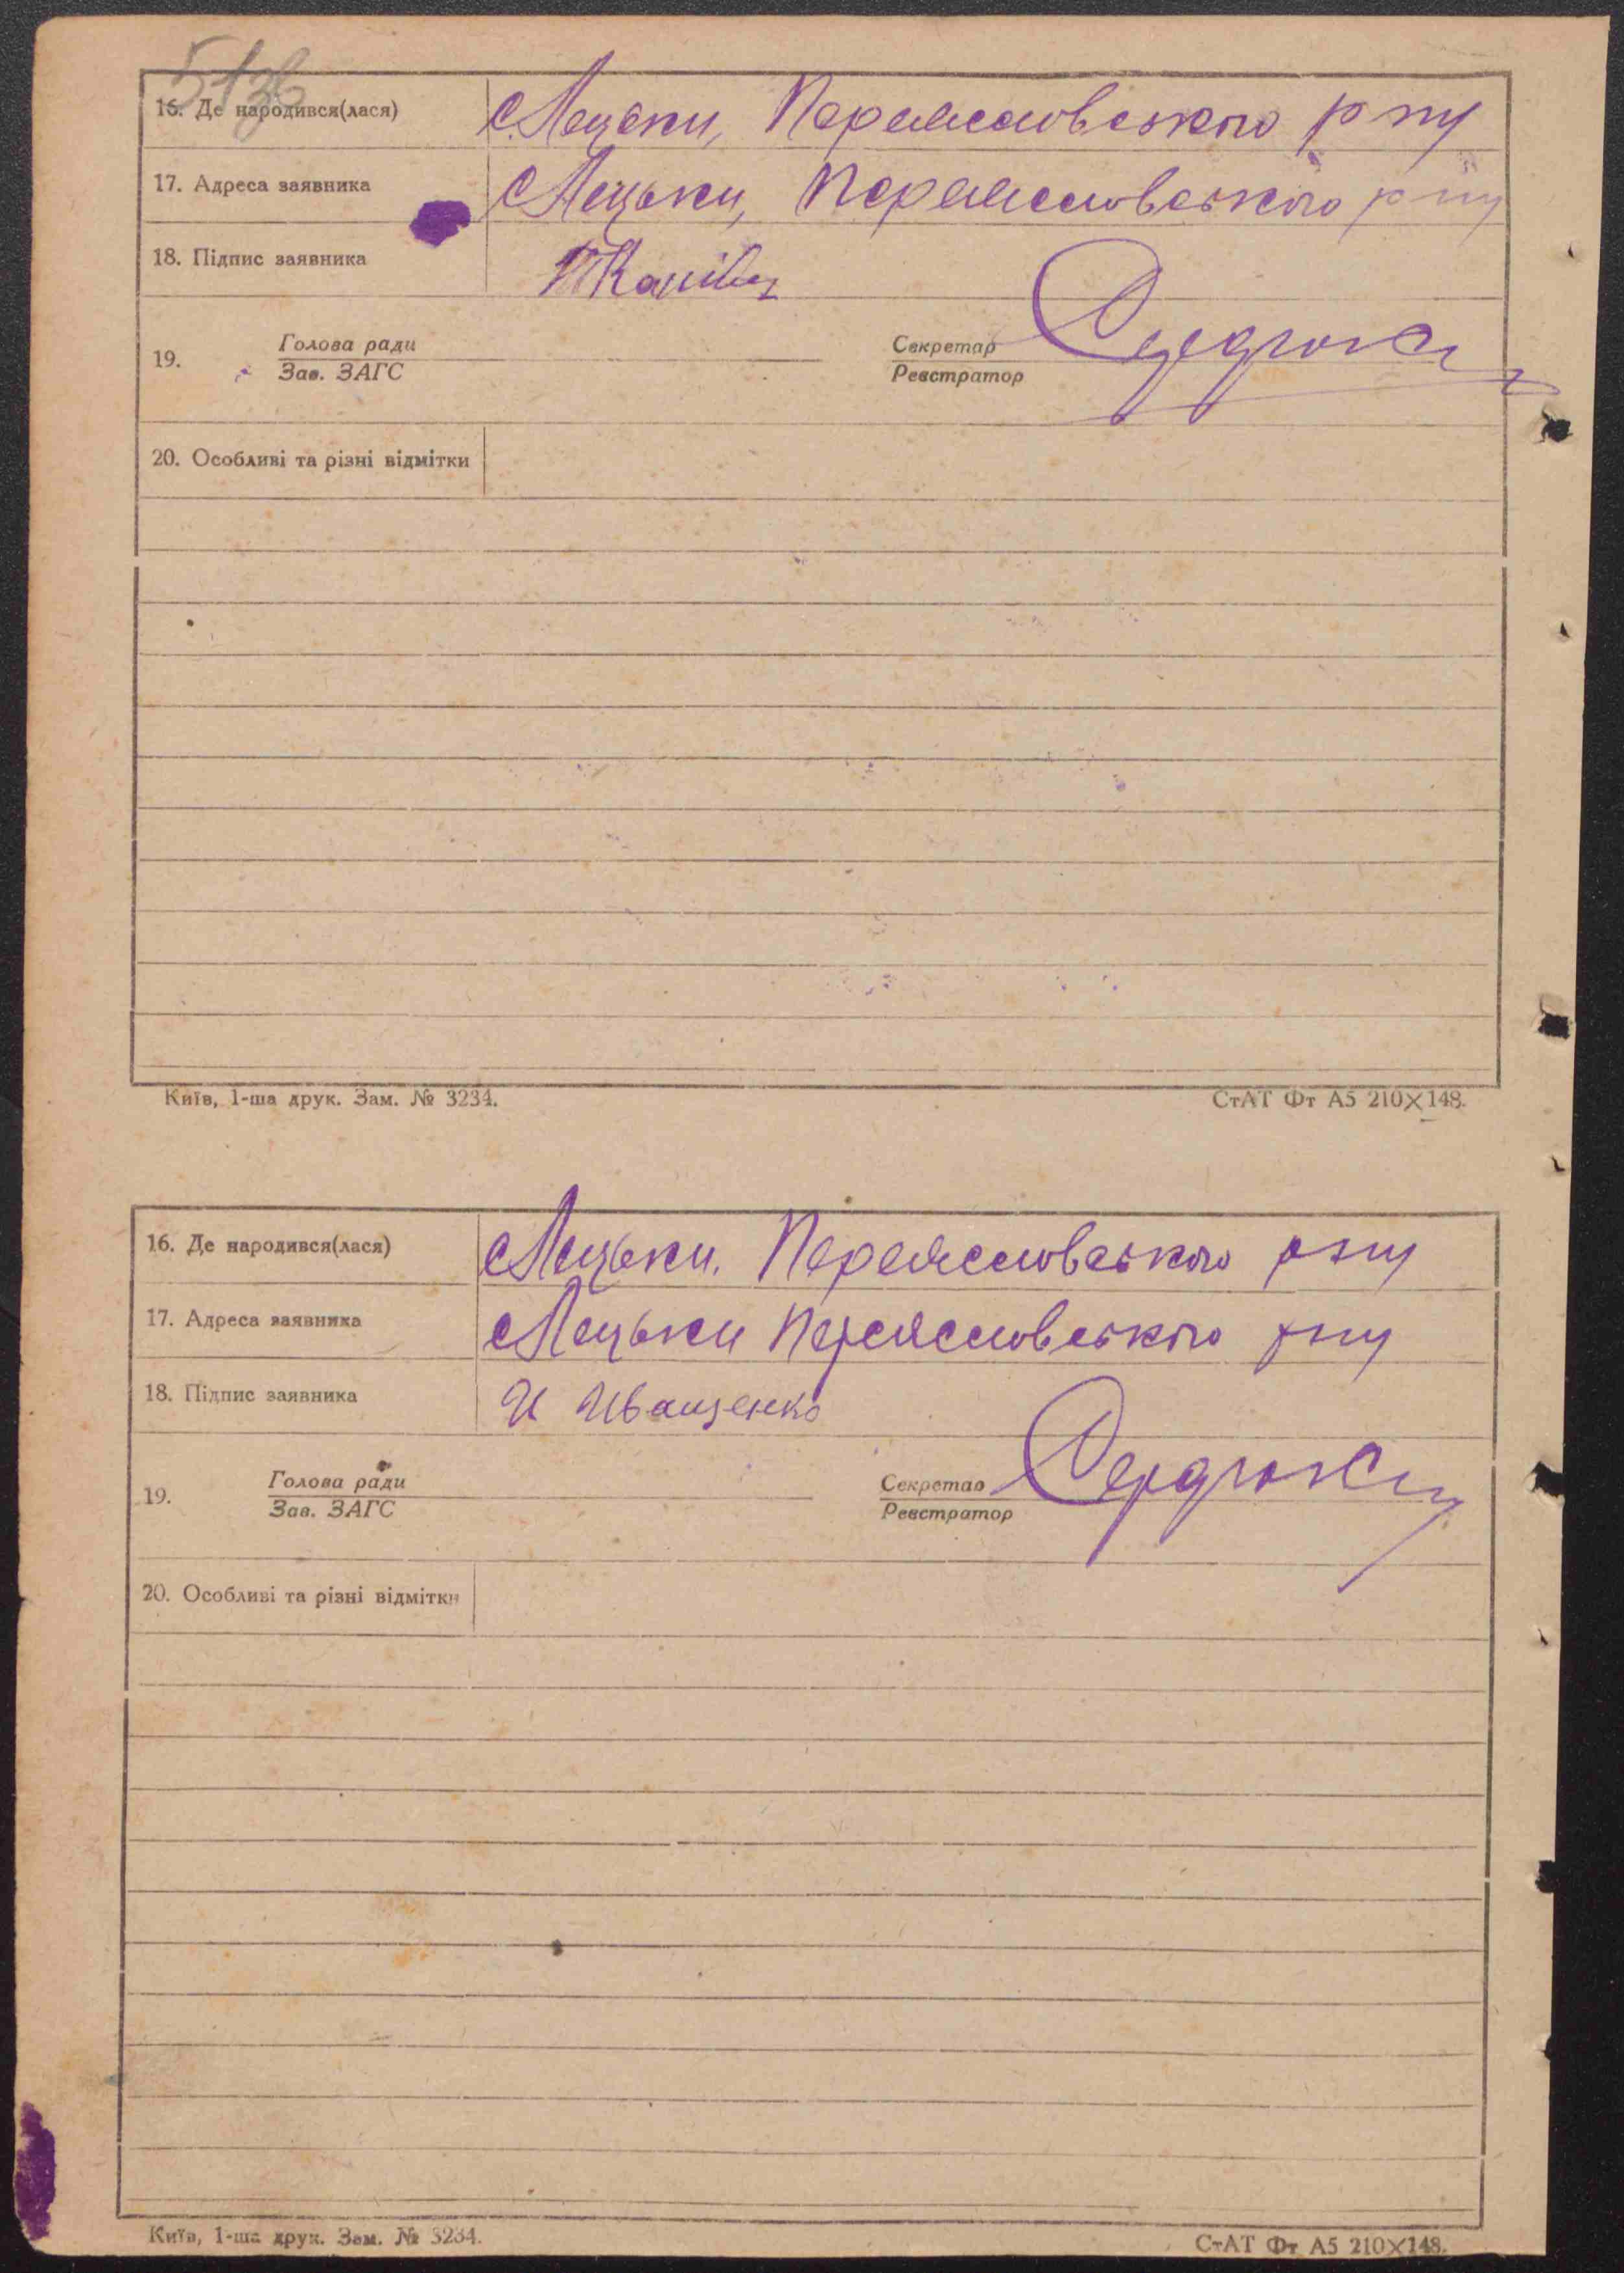 51зв
16. Де народився(лася) с. Лецьки, Переяславського р ну
17. Адреса заявника с Лецьки, Переяславського р ну
18. Підпис заявника Канівец
19. Голова ради Секретар Сердюк
Зав. ЗАГС Реєстратор
20. Особливі та різні відмітки
Київ, 1-ша друк. Зам. № 3234. СтАТ Фт А5 210×148.
16. Де народився(лася) с Лецьки. Переяславського р ну
17. Адреса заявника с Лецьки Переяславського р ну
18. Підпис заявника И Иващенко
19. Голова ради Секретар Сердюк
Зав. ЗАГС Реєстратор
20. Особливі та різні відмітки
Київ, 1-ша друк. Зам. № 3234. СтАТ Фт А5 210×148.